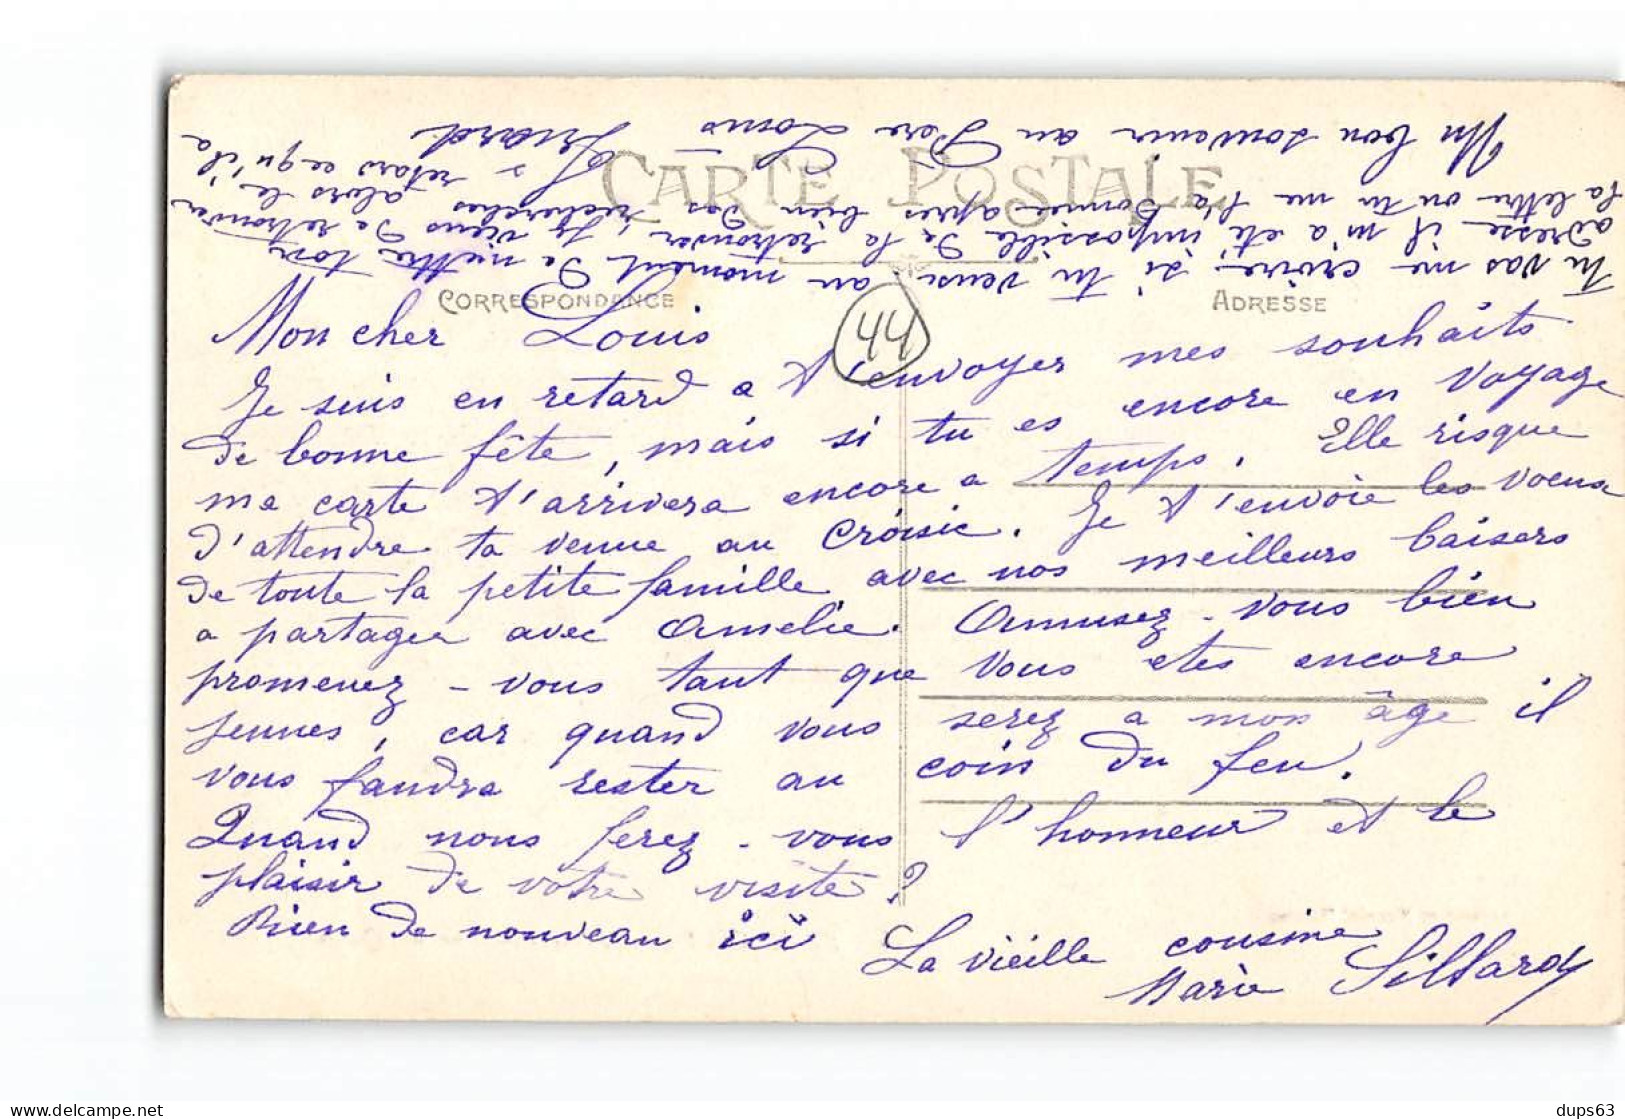 CARTE POSTALE
CORRESPONDANCE
ADRESSE
44
Mon cher Louis
Je suis en retard a t'envoyer mes souhaits
de bonne fête, mais si tu es encore en voyage
ma carte t'arrivera encore a temps. Elle risque
d'attendre ta venue au Croisic. Je t'envoie les voeux
de toute la petite famille avec nos meilleurs baisers
a partager avec Amelie. Amusez-vous bien
promenez-vous tant que vous etes encore
jeunes, car quand vous serez a mon âge il
vous faudra rester au coin du feu.
Quand nous ferez-vous l'honneur et le
plaisir de votre visite?
Rien de nouveau ici
La vieille cousine
Marie
Tu vas me croire si tu veux au moment de mettre ton
adresse il m'a eté impossible de la retrouver, je viens de retrouver
la lettre ou tu me l'a donnée après bien des recherches alors le
retard ce qu'il a
Un bon souvenir au Pere Louis
dups63